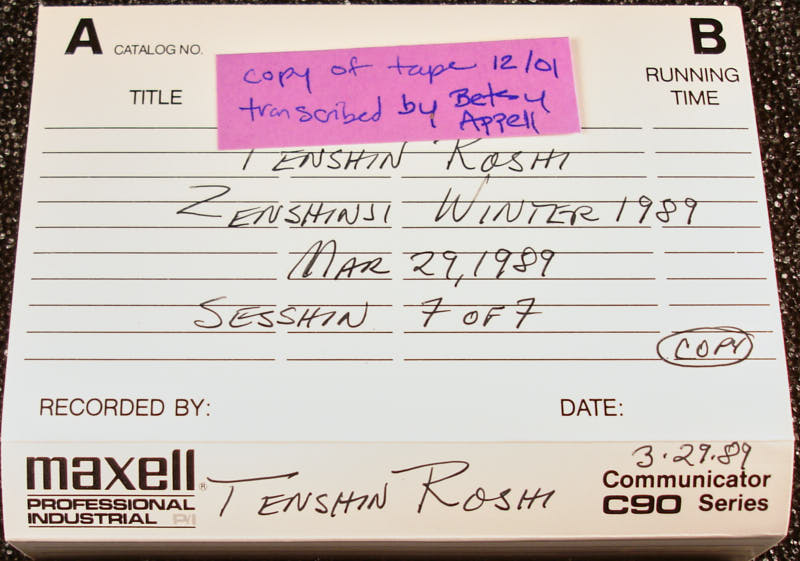 A CATALOG NO.
B
copy of tape 12/01
transcribed by Betsy
Appell
TITLE
RUNNING
TIME
TENSHIN ROSHI
ZENSHINJI WINTER 1989
MAR 29, 1989
SESSHIN 7 OF 7
COPY
RECORDED BY:
DATE:
maxell®
PROFESSIONAL
INDUSTRIAL P/I
TENSHIN ROSHI
3.29.89
Communicator
C90 Series